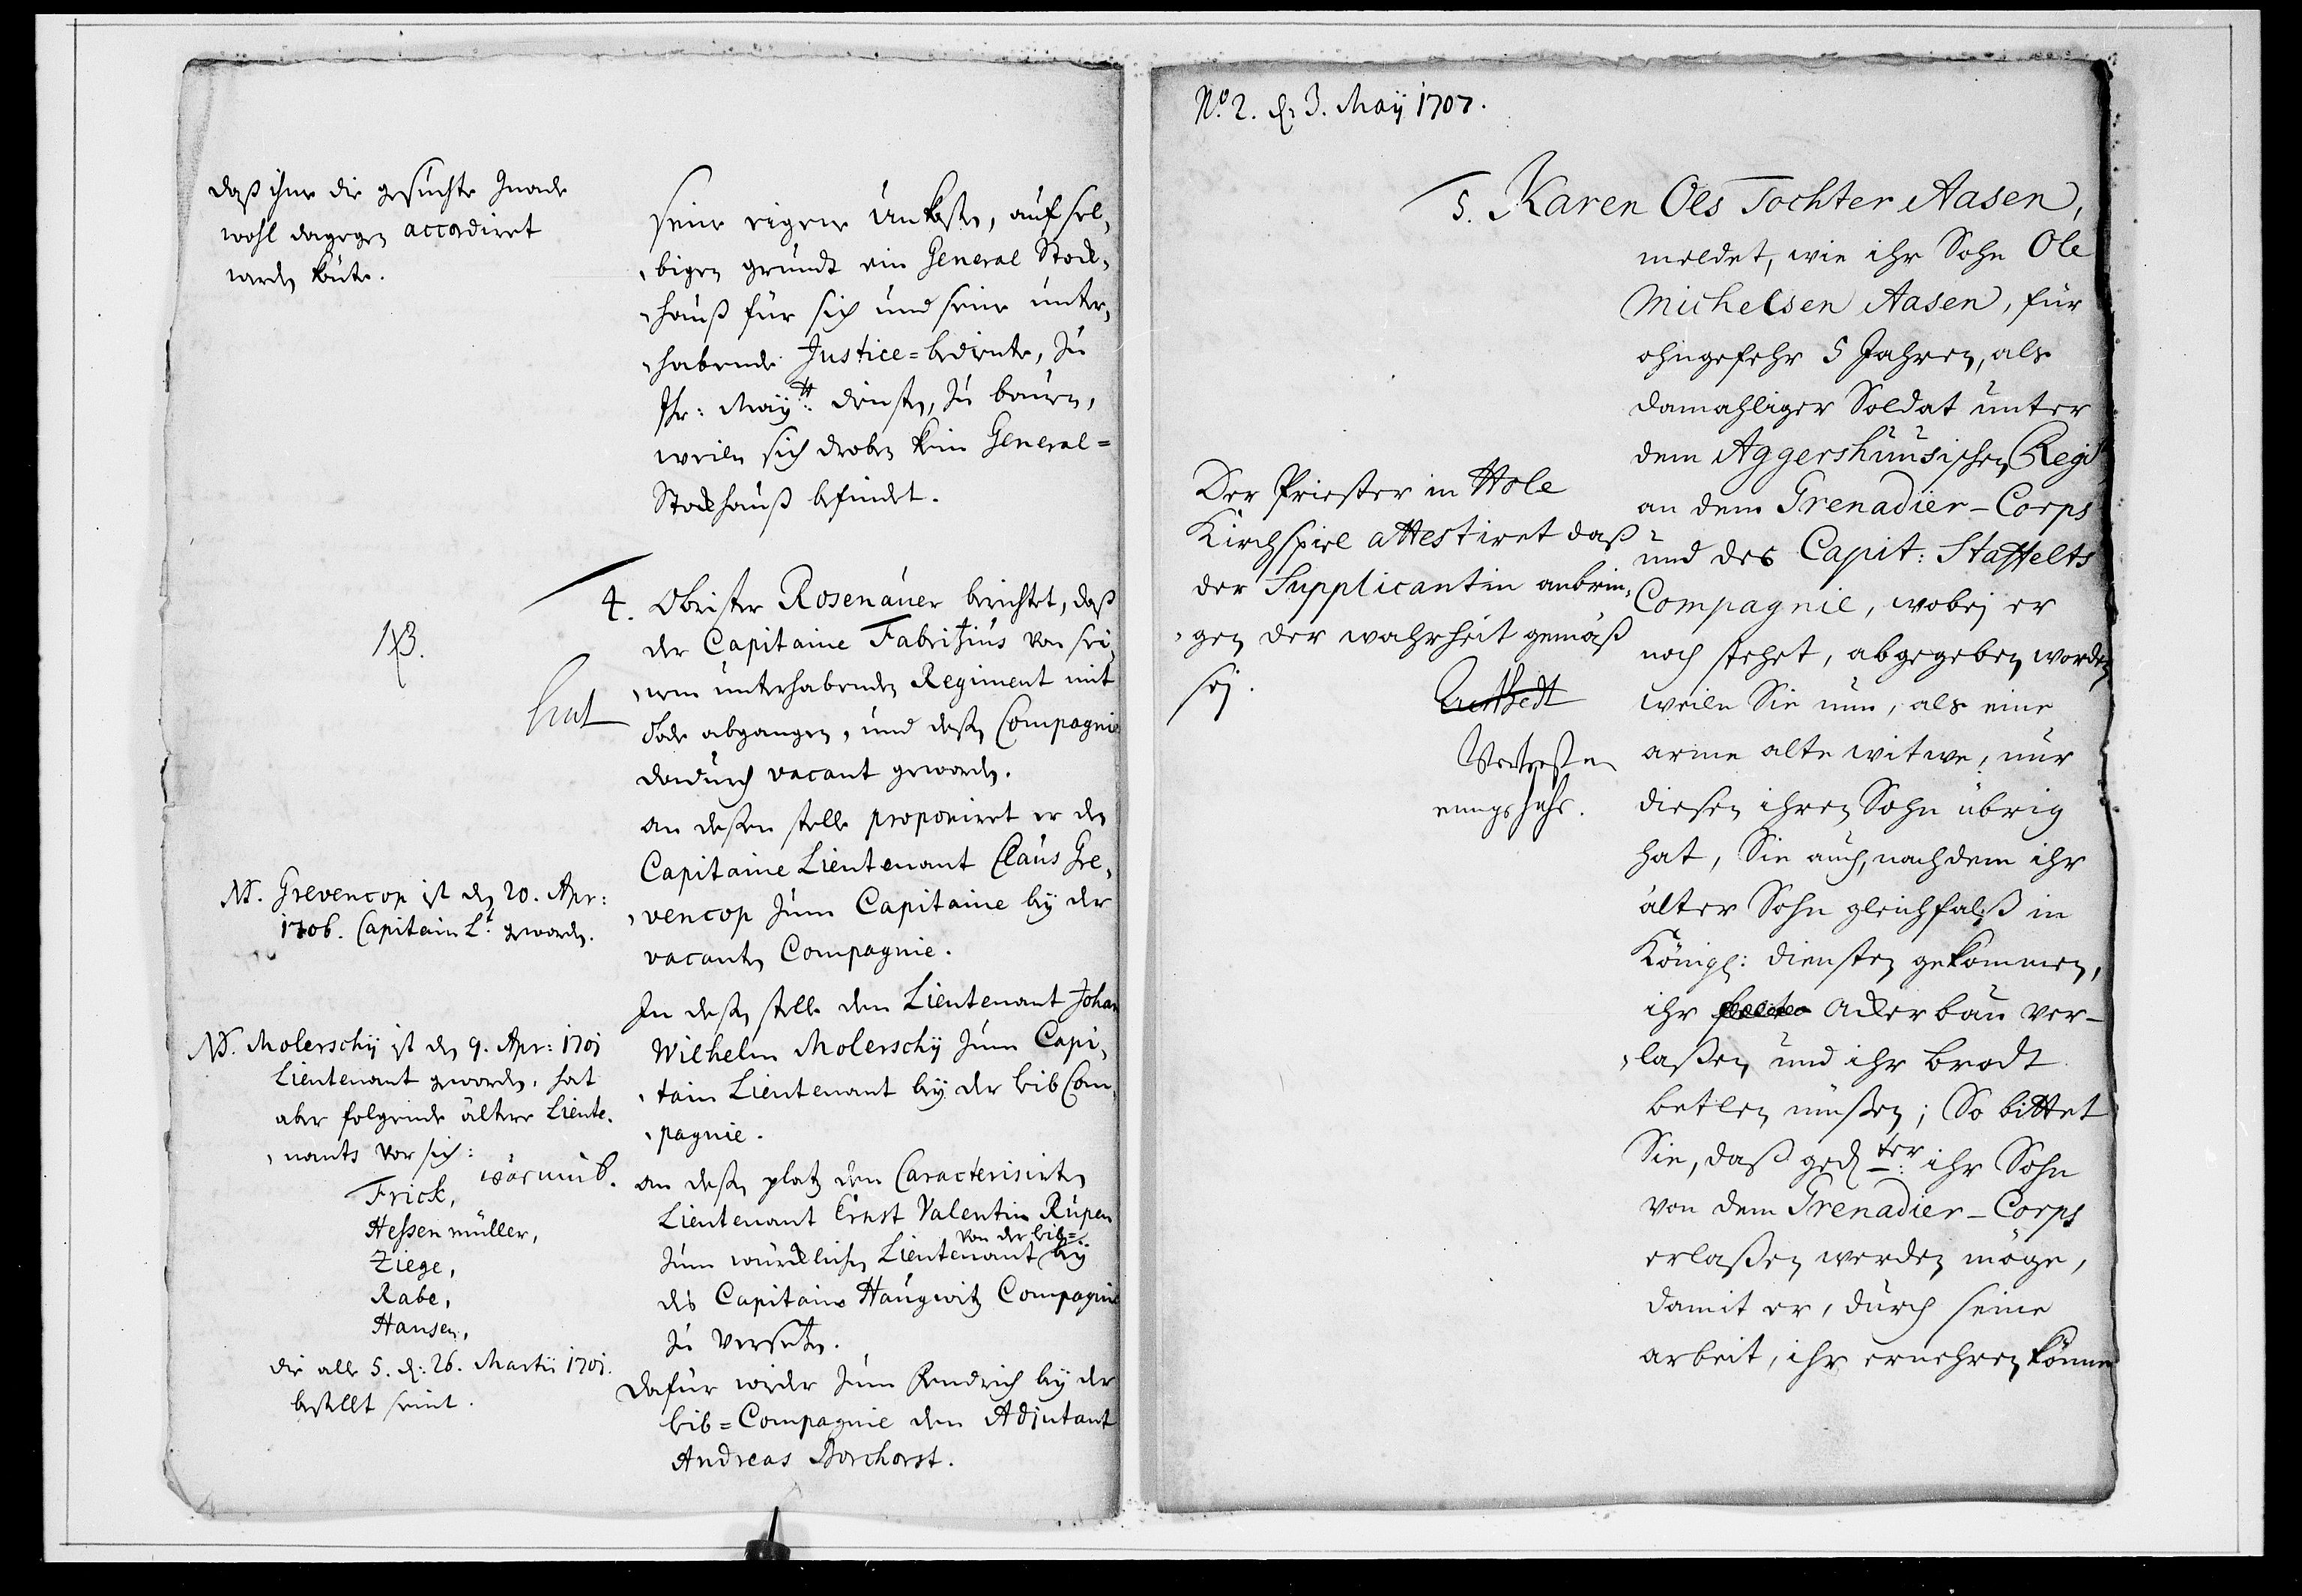 daß ihme die gesuchte Gnade
wohl dagegen accordiret
werden könte.
seine eigene Unkosten, auf sel„
„bigen grundt ein General Stock„
„hauß für sich und seine unter„
„habende Justice=bediente, zu
Ihr: Maÿtt: diensten, zu bauen,
weilen sich droben kein General=
Stockhauß befindet.
4. Obrister Rosenauer berichtet, daß
der Capitaine Fabritzius von sei„
„nem unterhabenden Regiment mit
Tode abgangen, und deßen Compagnie
dadurch vacant geworden.
an deßen stelle proponiret er den
Capitaine Lieutenant Claus Gre„
„vencop zum Capitaine beÿ der
vacanten Compagnie.
In deßen stelle den Lieutenant Johan
Wilhelm Molerschÿ zum Capi„
„tain Lieutenant beÿ der Leib Com„
„pagnie.
an deßen platz den Caracterisirten
Lieutenant Ernst Valentin Rüpen
von der Leib=
zum würcklichen Lieutenant beÿ
des Capitains Haugwitz Compagnie
zu versetzen.
Dafür wieder zum Fendrich beÿ der
Leib=Compagnie den Adjutant
Andreas Borchorst.
NB.
hat
NB. Grevencop ist den 20. Apr:
1706. Capitain Lt. geworden.
NB. Molerschÿ ist den 9. Apr: 1701
Lieutenant geworden, hat
aber folgende ältere Lieute„
„nants vor sich:
Frick,
Heßenmüller,
Ziege,
Rabe,
Hansen,
die alle 5. d: 26. Martii 1701.
bestellt seint.
No. 2. d: 3. Maÿ 1707.
5. Karen Oles Tochter Aasen,
meldet, wie ihr Sohn Ole
Michelsen Aasen, für
ohngefehr 5 Jahren, als
damahliger Soldat unter
dem Aggershuusischen Regt
an dem Grenadier-Corps
und des Capit: Staffelts
Compagnie, wobej er
noch stehet, abgegeben worden
weilen Sie nun, als eine
arme alte witwe, nur
diesen ihren Sohn übrig
hat, Sie auch, nachdem ihr
älter Sohn gleichfalß in
Königl: diensten gekommen,
ihr Ackerbau ver-
„laßen und ihr brodt
betlen müßen; So bittet
Sie, daß gedter: ihr Sohn
von dem Grenadier-Corps
erlaßen werden möge,
damit er, durch seine
arbeit, ihr ernehren könne
Der Priester in Hole
Kirchspiel attestiret daß
der Supplicantin anbrin„
„gen der wahrheit gemäß
sej.